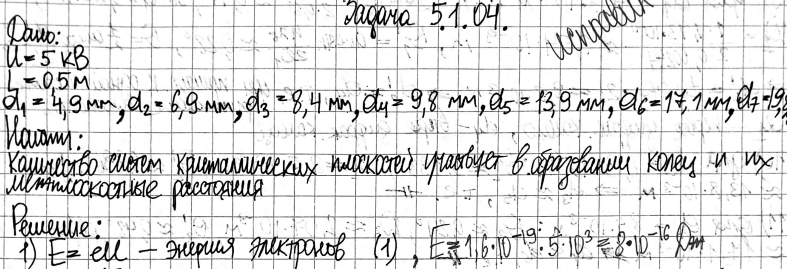 Задача 5.1.04.
исправил
Дано:
U = 5 кВ
L = 0,5 м
d₁ = 4,9 мм, d₂ = 6,9 мм, d₃ = 8,4 мм, d₄ = 9,8 мм, d₅ = 13,9 мм, d₆ = 17,1 мм, d₇ = 19,8
Найти:
Количество систем кристаллических плоскостей участвует в образовании колец и их
межплоскостные расстояния
Решение:
1) E = eU — энергия электронов (1), E = 1,6·10⁻¹⁹·5·10³ = 8·10⁻¹⁶ Дж